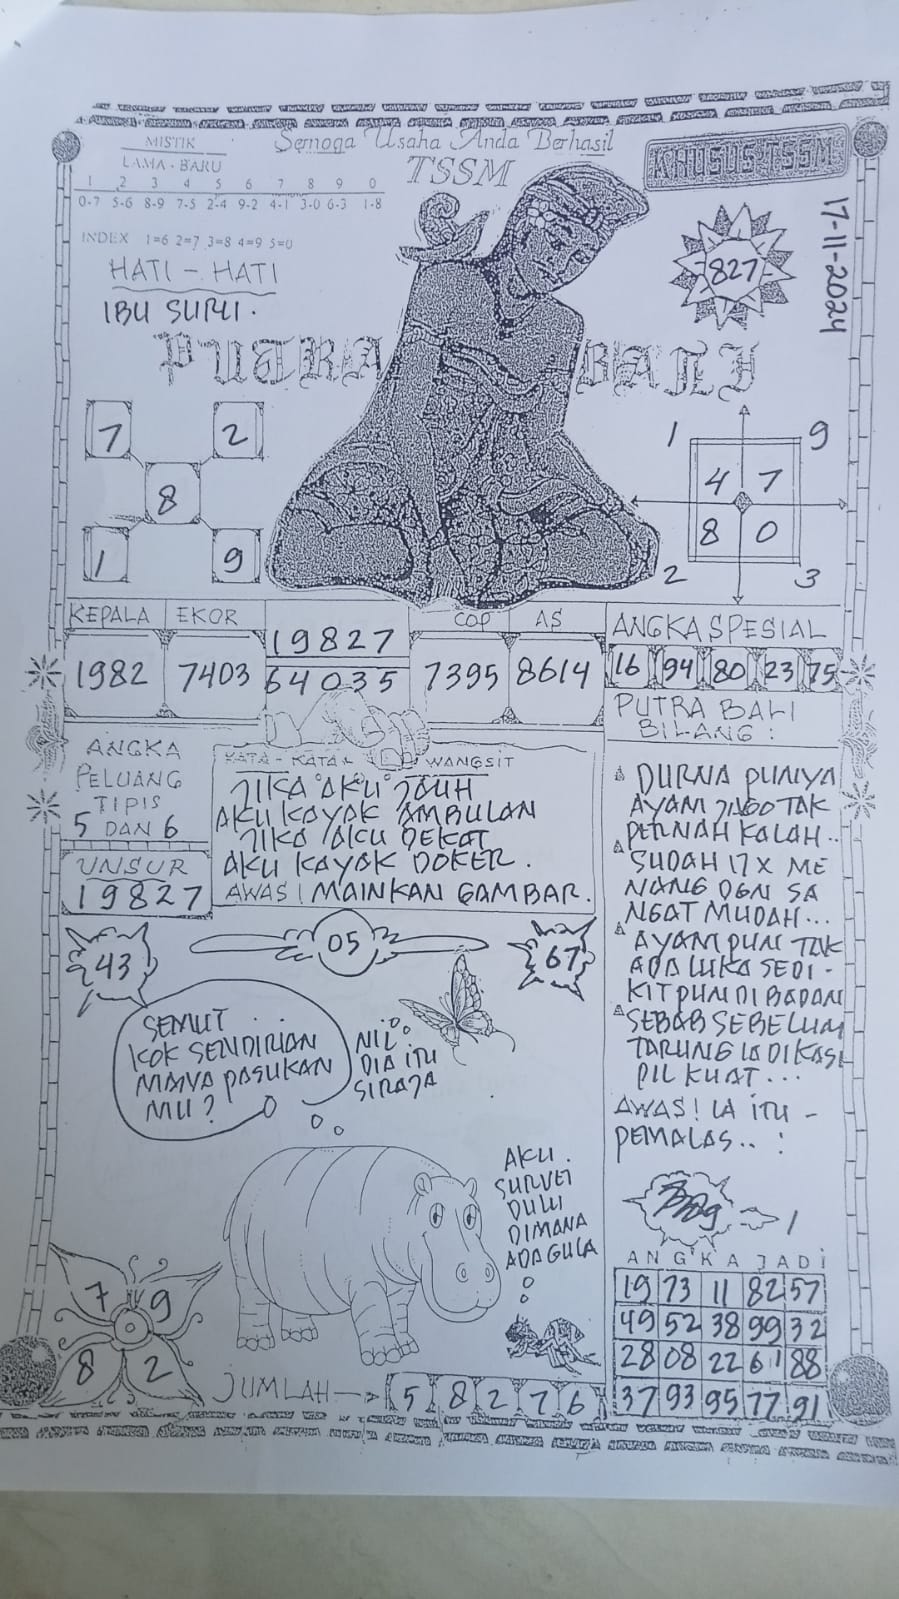 MISTIK
LAMA - BARU
1 2 3 4 5 6 7 8 9 0
0-7 5-6 8-9 7-5 2-4 9-2 4-1 3-0 6-3 1-8
INDEX 1=6 2=7 3=8 4=9 5=0
HATI - HATI
IBU SURI.
Semoga Usaha Anda Berhasil
TSSM
KHUSUS TSSM
17-11-2024
827
PUTRA BALI
7 2
8
1 9
1 9
4 7
8 0
2 3
KEPALA EKOR
1982 7403
19827
64035
COP AS
7395 8614
ANGKA SPESIAL
16 94 80 23 75
PUTRA BALI
BILANG :
ANGKA
PELUANG
TIPIS
5 DAN 6
UNSUR
19827
KATA - KATA WANGSIT
JIKA AKU JAUH
AKU KAYAK AMBULAN
JIKA AKU DEKAT
AKU KAYAK DOKER.
AWAS! MAINKAN GAMBAR.
DURNA PUNYA
AYAM JAGO TAK
PERNAH KALAH..
SUDAH 17X ME
NANG DGN SA
NGAT MUDAH...
AYAM PUN TAK
ADA LUKA SEDI-
KIT PUN DI BADAN
SEBAB SEBELUM
TARUNG IA DIKASI
PIL KUAT...
AWAS! IA ITU -
PEMALAS.. :
43
05
67
SEMUT
KOK SENDIRIAN
MANA PASUKAN
MU?
NIL
DIA ITU
SIRAJA
AKU.
SURVEI
DULU
DIMANA
ADA GULA
7 9
8 2
JUMLAH 5 8 2 7 6
1
ANGKA JADI
19 73 11 82 57
49 52 38 99 32
28 08 22 61 88
37 93 95 77 91